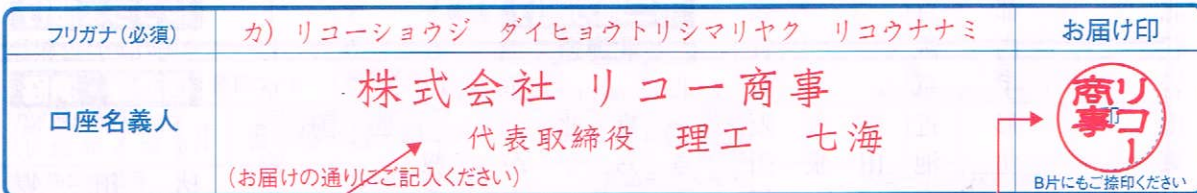 フリガナ(必須)
カ) リコーショウジ ダイヒョウトリシマリヤク リコウナナミ
お届け印
口座名義人
株式会社 リコー商事
代表取締役 理工 七海
(お届けの通りにご記入ください)
リコー
商事
印
B片にもご捺印ください